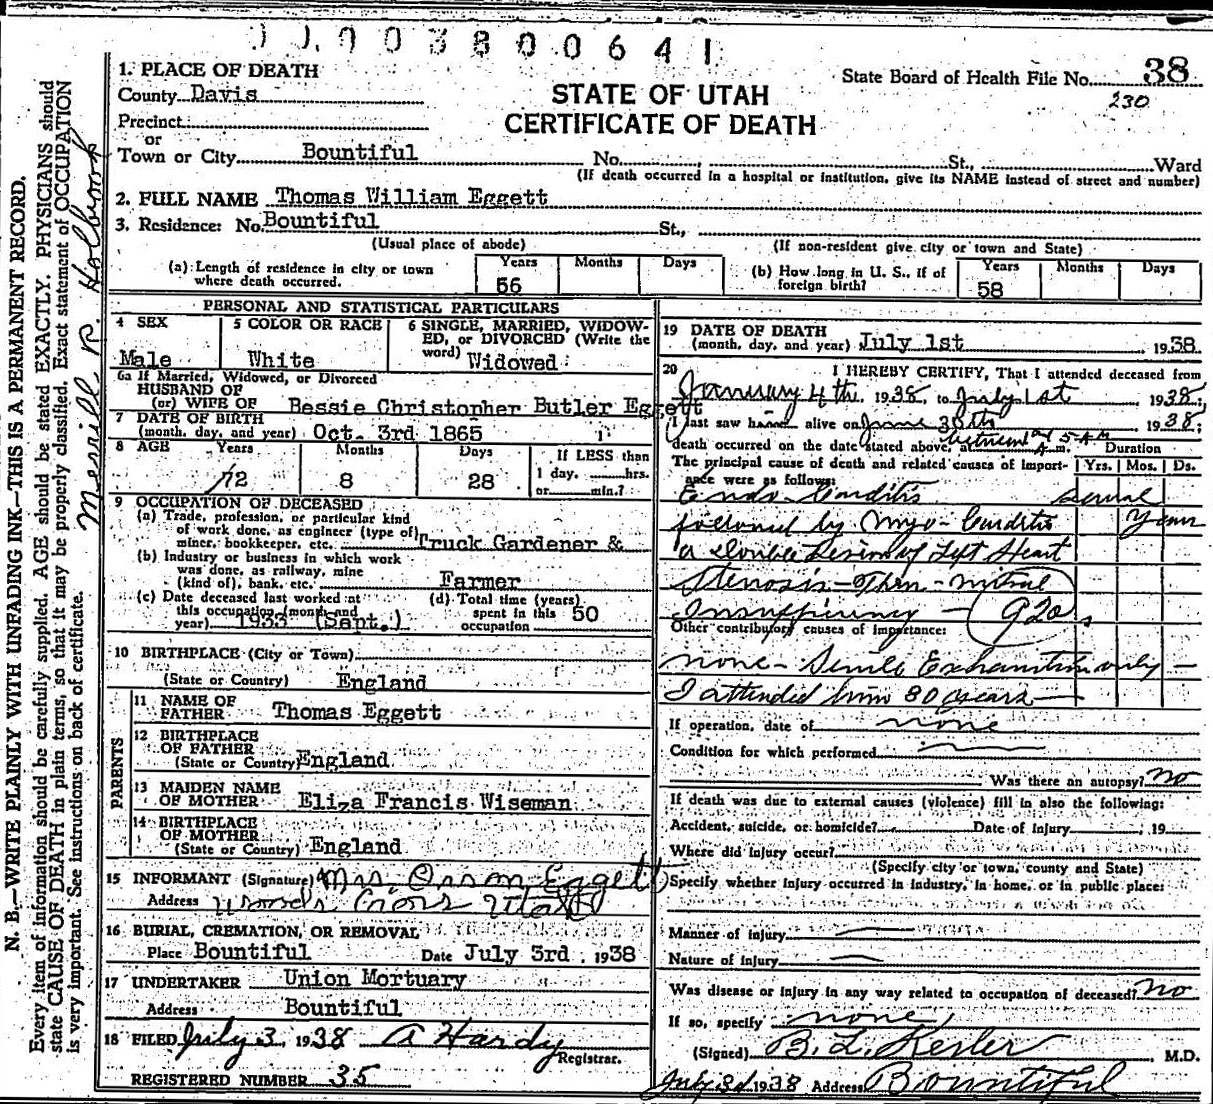 0038000641
1. PLACE OF DEATH
County Davis
Precinct
or
Town or City Bountiful No. St., Ward
(If death occurred in a hospital or institution, give its NAME instead of street and number)
STATE OF UTAH
CERTIFICATE OF DEATH
State Board of Health File No. 38
230
2. FULL NAME Thomas William Eggett
3. Residence: No. Bountiful St.,
(Usual place of abode) (If non-resident give city or town and State)
(a) Length of residence in city or town where death occurred. Years Months Days
56
(b) How long in U. S., if of foreign birth? Years Months Days
58
PERSONAL AND STATISTICAL PARTICULARS
4 SEX 5 COLOR OR RACE 6 SINGLE, MARRIED, WIDOWED, or DIVORCED (Write the word)
Male White Widowed
6a If Married, Widowed, or Divorced
HUSBAND OF
(or) WIFE OF Bessie Christopher Butler Eggett
7 DATE OF BIRTH
(month, day, and year) Oct. 3rd 1865
8 AGE Years Months Days If LESS than
1 day, hrs.
or min.?
72 8 28
9 OCCUPATION OF DECEASED
(a) Trade, profession, or particular kind
of work done, as engineer (type of)
miner, bookkeeper, etc. Truck Gardener &
(b) Industry or business in which work
was done, as railway, mine
(kind of), bank, etc. Farmer
(c) Date deceased last worked at
this occupation (month and
year) 1933 (Sept.)
(d) Total time (years)
spent in this
occupation 50
10 BIRTHPLACE (City or Town)
(State or Country) England
PARENTS
11 NAME OF
FATHER Thomas Eggett
12 BIRTHPLACE
OF FATHER
(State or Country) England
13 MAIDEN NAME
OF MOTHER Eliza Francis Wiseman
14 BIRTHPLACE
OF MOTHER
(State or Country) England
15 INFORMANT (Signature) Mrs. Orson Eggett
Address Woods Cross Utah
16 BURIAL, CREMATION, OR REMOVAL
Place Bountiful Date July 3rd, 1938
17 UNDERTAKER Union Mortuary
Address Bountiful
18 FILED July 3, 1938 A Hardy
Registrar.
REGISTERED NUMBER 35
19 DATE OF DEATH
(month, day, and year) July 1st 1938.
20 I HEREBY CERTIFY, That I attended deceased from
January 4th 1938, to July 1st 1938;
I last saw h alive on June 30th 1938;
death occurred on the date stated above, at 5 A.M. m. Duration
The principal cause of death and related causes of importance were as follows: Yrs. Mos. Ds.
Endo-Carditis
followed by Myo-Carditis Years
a double Lesion of Left Heart
Stenosis - Then - mitral
Insufficiency - 92a
Other contributory causes of importance:
none - Senile Exhaustion only -
I attended him 30 years
If operation, date of none
Condition for which performed
Was there an autopsy? no
If death was due to external causes (violence) fill in also the following:
Accident, suicide, or homicide? Date of injury , 19
Where did injury occur?
(Specify city or town, county and State)
Specify whether injury occurred in industry, in home, or in public place:
Manner of injury
Nature of injury
Was disease or injury in any way related to occupation of deceased? no
If so, specify none
(Signed) B. L. Kesler, M.D.
July 3d 1938 Address Bountiful
N. B.—WRITE PLAINLY WITH UNFADING INK—THIS IS A PERMANENT RECORD.
Every item of information should be carefully supplied. AGE should be stated EXACTLY. PHYSICIANS should
state CAUSE OF DEATH in plain terms, so that it may be properly classified. Exact statement of OCCUPATION
is very important. See instructions on back of certificate.
Merrill R. Holbrook